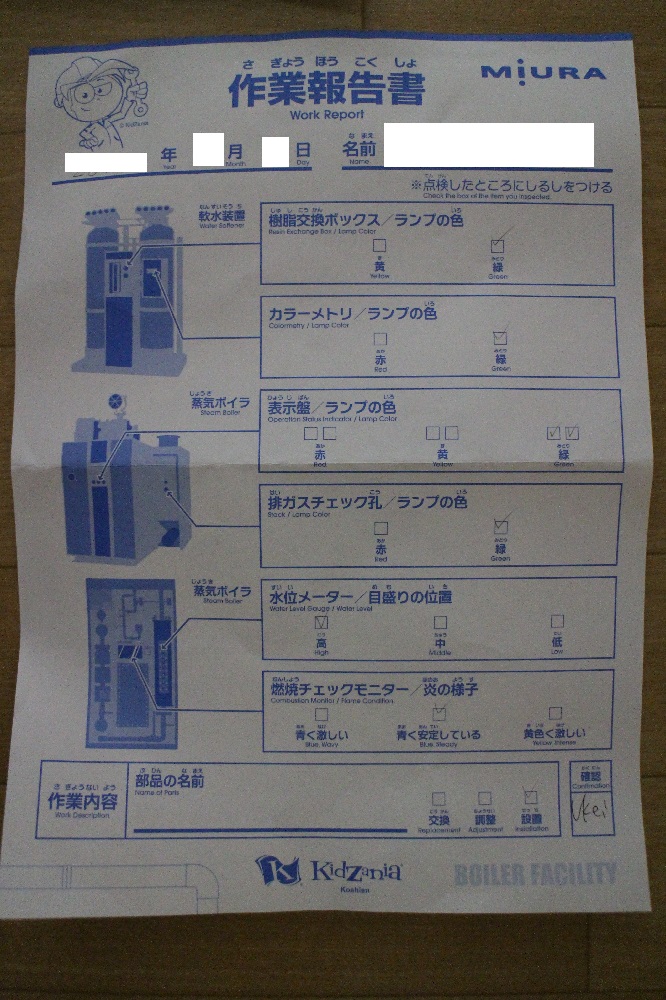 さ ぎょう ほう こく しょ
作業報告書
Work Report
MiURA
© KidZania
年 月 日 名前
Year Month Day Name
※点検したところにしるしをつける
Check the box of the item you inspected.
軟水装置
Water Softener
樹脂交換ボックス/ランプの色
Resin Exchange Box / Lamp Color
黄 緑
Yellow Green
カラーメトリ/ランプの色
Colormetry / Lamp Color
赤 緑
Red Green
蒸気ボイラ
Steam Boiler
表示盤/ランプの色
Operation Status Indicator / Lamp Color
赤 黄 緑
Red Yellow Green
排ガスチェック孔/ランプの色
Stack / Lamp Color
赤 緑
Red Green
蒸気ボイラ
Steam Boiler
水位メーター/目盛りの位置
Water Level Gauge / Water Level
高 中 低
High Middle Low
燃焼チェックモニター/炎の様子
Combustion Monitor / Flame Condition
青く激しい 青く安定している 黄色く激しい
Blue, Wavy Blue, Steady Yellow, Intense
作業内容
Work Description
部品の名前
Name of Parts
交換 調整 設置
Replacement Adjustment Installation
確認
Confirmation
KidZania
Koshien
BOILER FACILITY